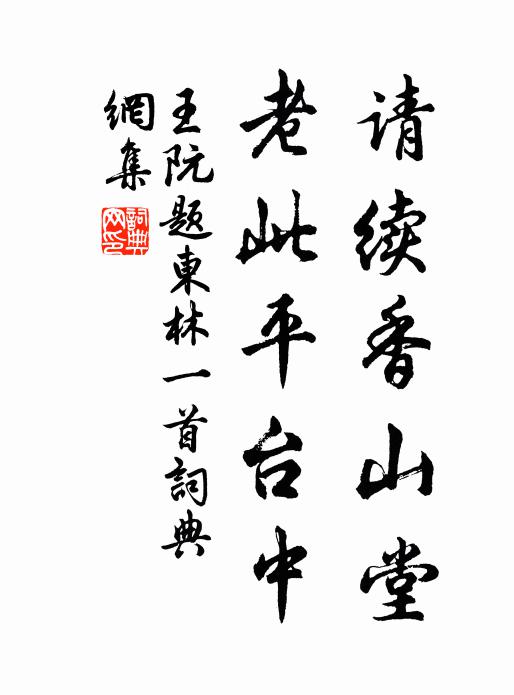 请续香山堂
老此平台中
王阮题東林一首詞典
網集
詞典网印